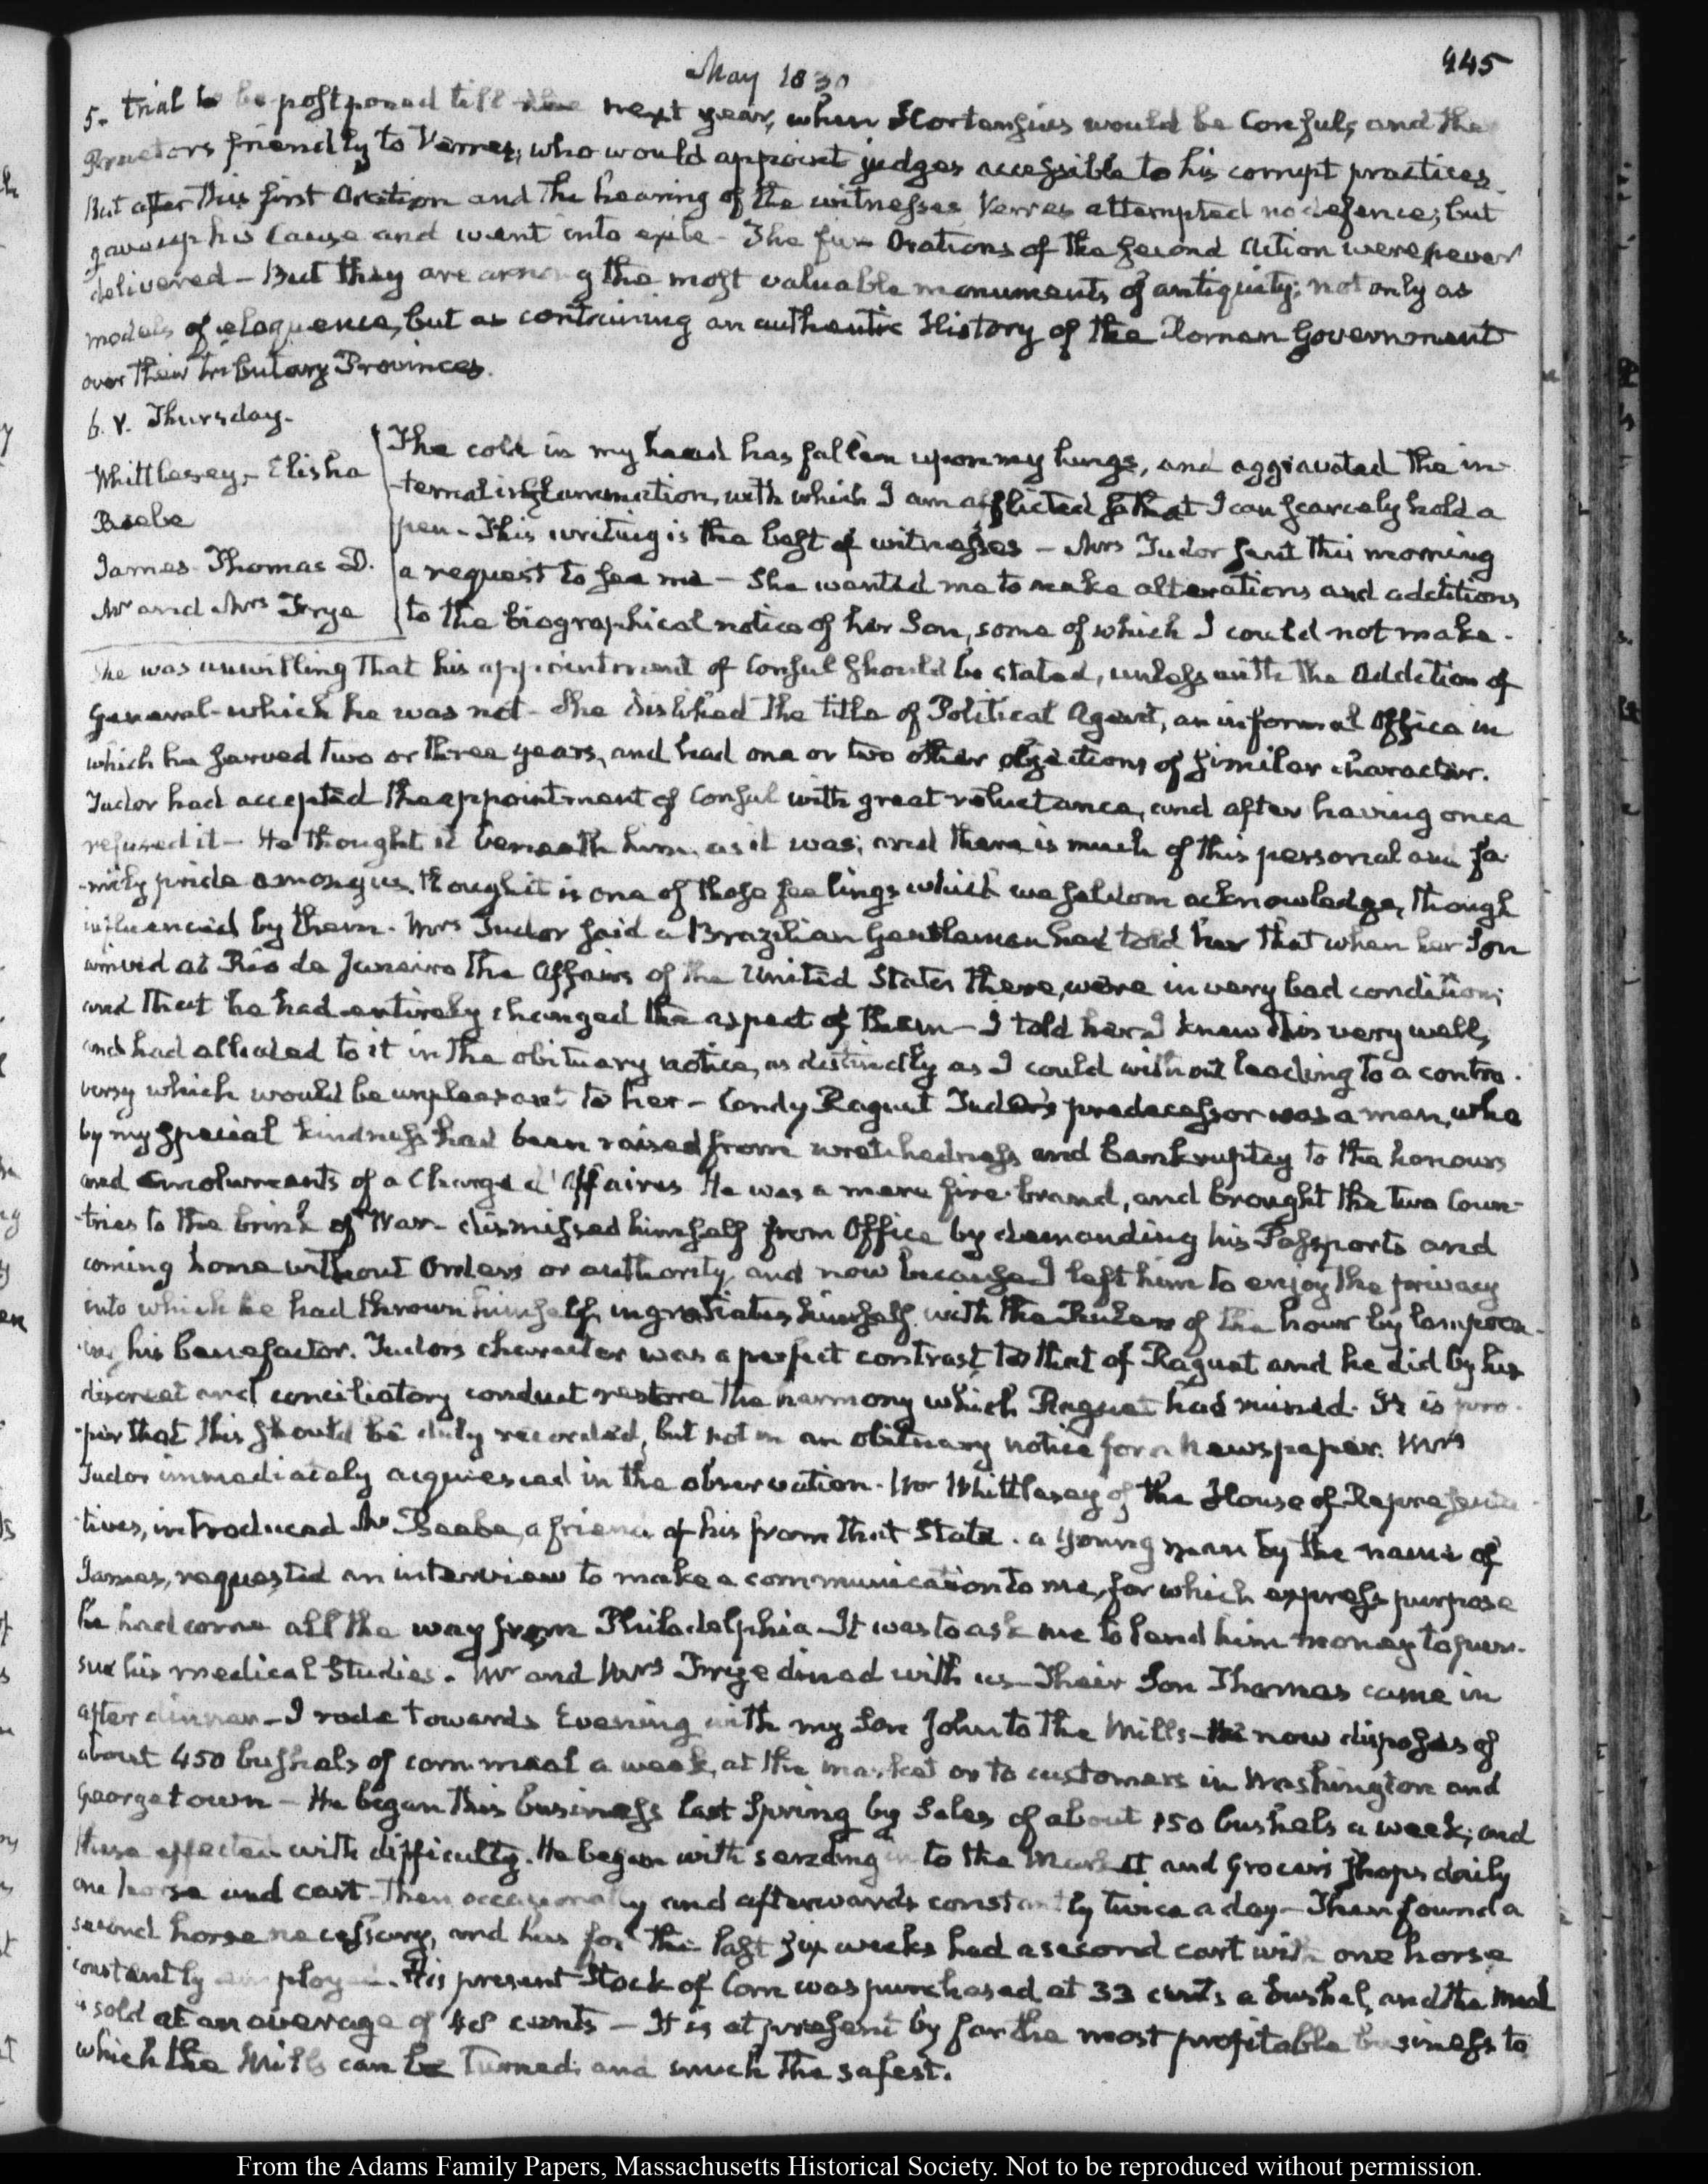 May 1830
445
5. trial to be postponed till the next year, when Hortensius would be Consul, and the
Praetors friendly to Verres, who would appoint judges accessible to his corrupt practices.
But after this first Oration and the hearing of the witnesses Verres attempted no defence; but
gave up his Cause and went into exile - The five Orations of the second Action were never
delivered - But they are among the most valuable monuments of antiquity; not only as
models of eloquence, but as containing an authentic History of the Roman Government
over their tributary Provinces.
6. V. Thursday.
Whittlesey - Elisha
Beebe
James - Thomas D.
Mr and Mrs Frye
The cold in my head has fallen upon my lungs, and aggravated the in-
-ternal inflammation, with which I am afflicted so that I can scarcely hold a
pen - This writing is the best of witnesses - Mrs Tudor sent this morning
a request to see me - She wanted me to make alterations and additions
to the biographical notice of her Son, some of which I could not make.
She was unwilling that his appointment of Consul should be stated, unless with the Addition of
General - which he was not - She disliked the title of Political Agent, an informal Office in
which he served two or three years, and had one or two other objections of similar character.
Tudor had accepted the appointment of Consul with great reluctance, and after having once
refused it - He thought it beneath him, as it was; and there is much of this personal and fa-
-mily pride among us, though it is one of those feelings which we seldom acknowledge, though
influenced by them. Mrs Tudor said a Brazilian Gentleman had told her that when her Son
arrived at Rio de Janeiro the Affairs of the United States there, were in very bad condition;
and that he had entirely changed the aspect of them - I told her I knew this very well,
and had alluded to it in the obituary notice, as distinctly as I could without leading to a contro-
versy which would be unpleasant to her - Condy Raguet Tudor's predecessor was a man, who
by my special kindness had been raised from wretchedness and bankruptcy to the honours
and emoluments of a Chargé d'Affaires. He was a mere fire-brand, and brought the two Coun-
-tries to the brink of War - dismissed himself from Office by demanding his Passports and
coming home without Orders or authority, and now because I left him to enjoy the privacy
into which he had thrown himself, ingratiates himself with the Rulers of the hour by lampoon-
-ing his benefactor. Tudors character was a perfect contrast to that of Raguet and he did by his
discreet and conciliatory conduct restore the harmony which Raguet had ruined. It is pro-
-per that this should be duly recorded, but not in an obituary notice for a newspaper. Mrs
Tudor immediately acquiesced in the observation. Mr Whittlesey of the House of Representa-
-tives, introduced Mr Beebe, a friend of his from that State. a young man by the name of
James, requested an interview to make a communication to me, for which express purpose
he had come all the way from Philadelphia - It was to ask me to lend him money to pur-
sue his medical Studies. Mr and Mrs Frye dined with us - Their Son Thomas came in
after dinner - I rode towards Evening with my Son John to the Mills - He now disposes of
about 450 bushels of corn meal a week, at the market or to customers in Washington and
Georgetown - He began this business last Spring by Sales of about 150 bushels a week; and
these effected with difficulty. He began with sending in to the Market and Grocers shops daily
one horse and cart - Then occasionally and afterwards constantly twice a day - Then found a
second horse necessary, and has for the last six weeks had a second cart with one horse
constantly employed. His present Stock of Corn was purchased at 33 cents a bushel, and the meal
is sold at an average of 48 cents - It is at present by far the most profitable business to
which the Mills can be turned; and much the safest.
From the Adams Family Papers, Massachusetts Historical Society. Not to be reproduced without permission.